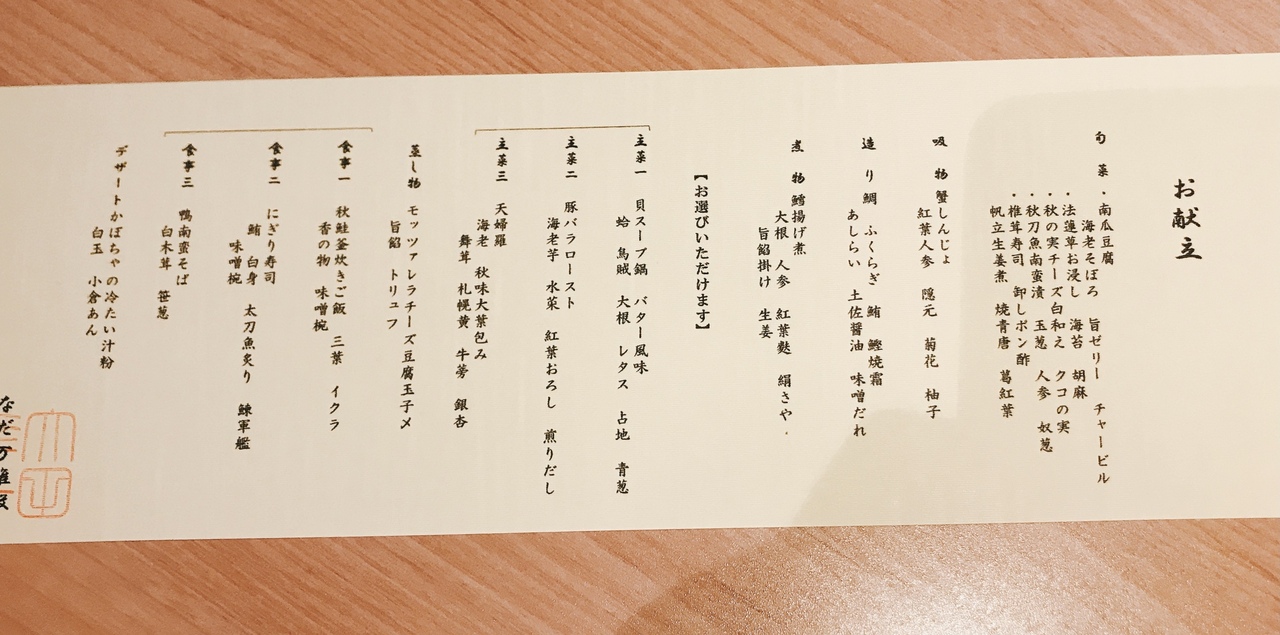 お献立
旬菜・南瓜豆腐
海老そぼろ 旨ゼリー チャービル
・法蓮草お浸し 海苔 胡麻
・秋の実チーズ白和え クコの実
・秋刀魚南蛮漬 玉葱 人参 奴葱
・椎茸寿司 卸しポン酢
帆立生姜煮 焼青唐 葛紅葉
吸物 蟹しんじょ
紅葉人参 隠元 菊花 柚子
造り 鯛 ふくらぎ 鮪 鰹焼霜
あしらい 土佐醤油 味噌だれ
煮物 鱈揚げ煮
大根 人参 紅葉麩 絹さや
旨餡掛け 生姜
【お選びいただけます】
主菜一 貝スープ鍋 バター風味
蛤 烏賊 大根 レタス 占地 青葱
主菜二 豚バラロースト
海老芋 水菜 紅葉おろし 煎りだし
主菜三 天婦羅
海老 秋味大葉包み
舞茸 札幌黄 牛蒡 銀杏
蒸し物 モッツァレラチーズ豆腐玉子〆
旨餡 トリュフ
食事一 秋鮭釜炊きご飯 三葉 イクラ
香の物 味噌椀
食事二 にぎり寿司
鮪 白身 太刀魚炙り 鰊軍艦
味噌椀
食事三 鴨南蛮そば
白木茸 笹葱
デザート かぼちゃの冷たい汁粉
白玉 小倉あん
なだ万雅殿